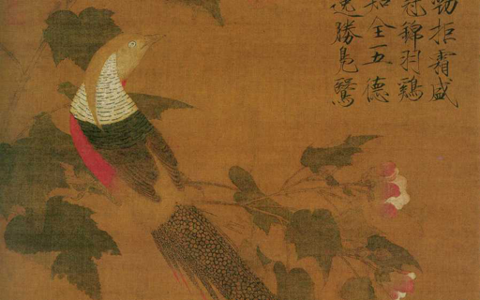 勁拒霜盛
冠錦羽雞
知全五德
逸勝鳧鷖